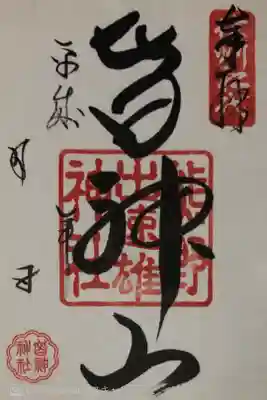 奉拝
皆神山
熊野
出速雄
神社
平成
年
月
日
皆神
神社